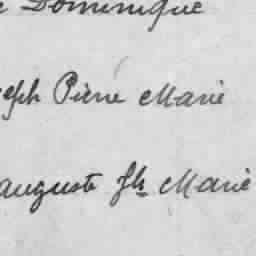 Dominique
eph Pierre Marie
auguste Jh Marie